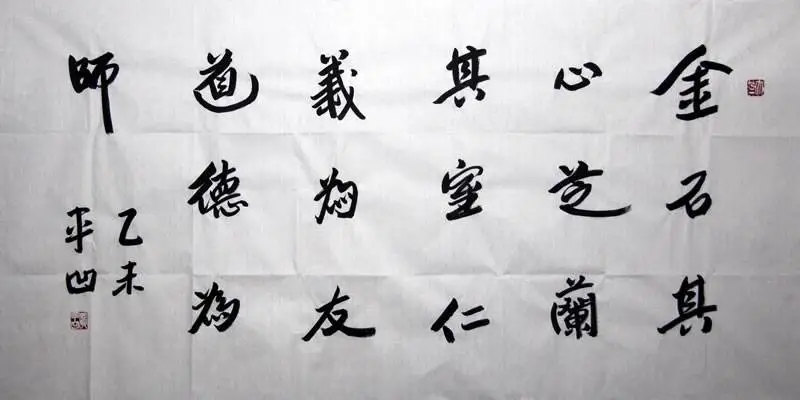 金石其
心芝蘭
其室仁
義為友
道德為
師
乙未
平凹